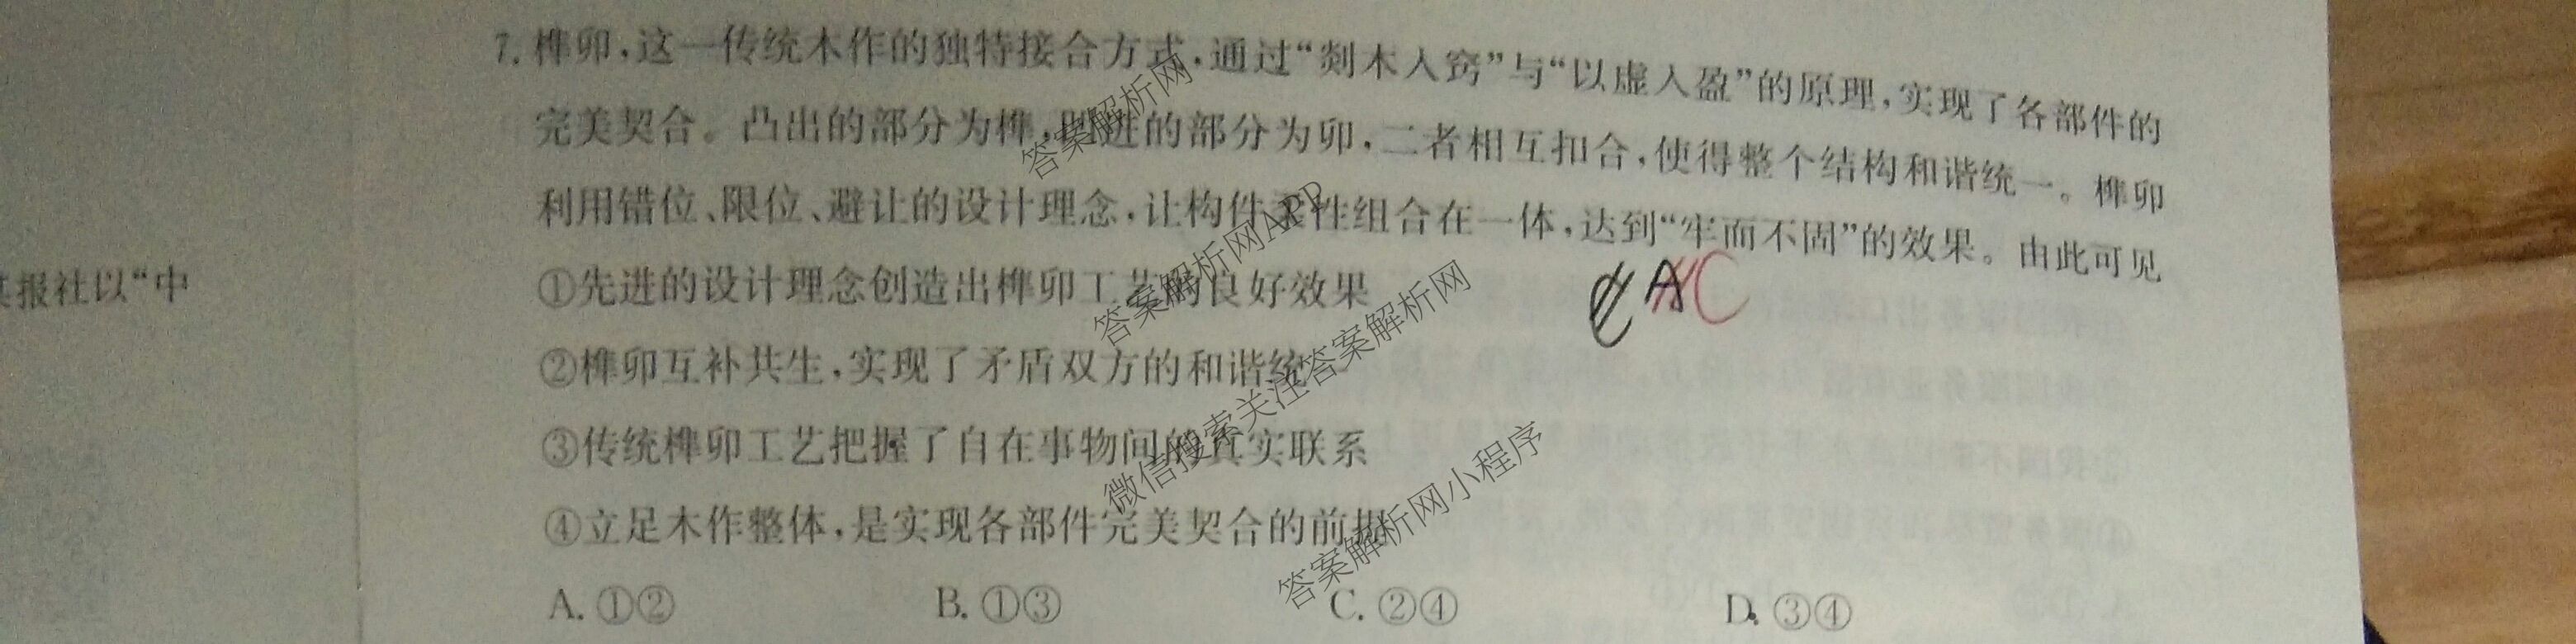 7. 榫卯，这一传统木作的独特接合方式，通过“剡木入窍”与“以虚入盈”的原理，实现了各部件的
完美契合。凸出的部分为榫，凹进的部分为卯，二者相互扣合，使得整个结构和谐统一。榫卯
利用错位、限位、避让的设计理念，让构件柔性组合在一体，达到“牢而不固”的效果。由此可见
报社以“中
①先进的设计理念创造出榫卯工艺的良好效果
A C
②榫卯互补共生，实现了矛盾双方的和谐统一
③传统榫卯工艺把握了自在事物间的真实联系
④立足木作整体，是实现各部件完美契合的前提
A. ①②　B. ①③　C. ②④　D. ③④
答案解析网
答案解析网APP
微信搜索关注答案解析网
答案解析网小程序